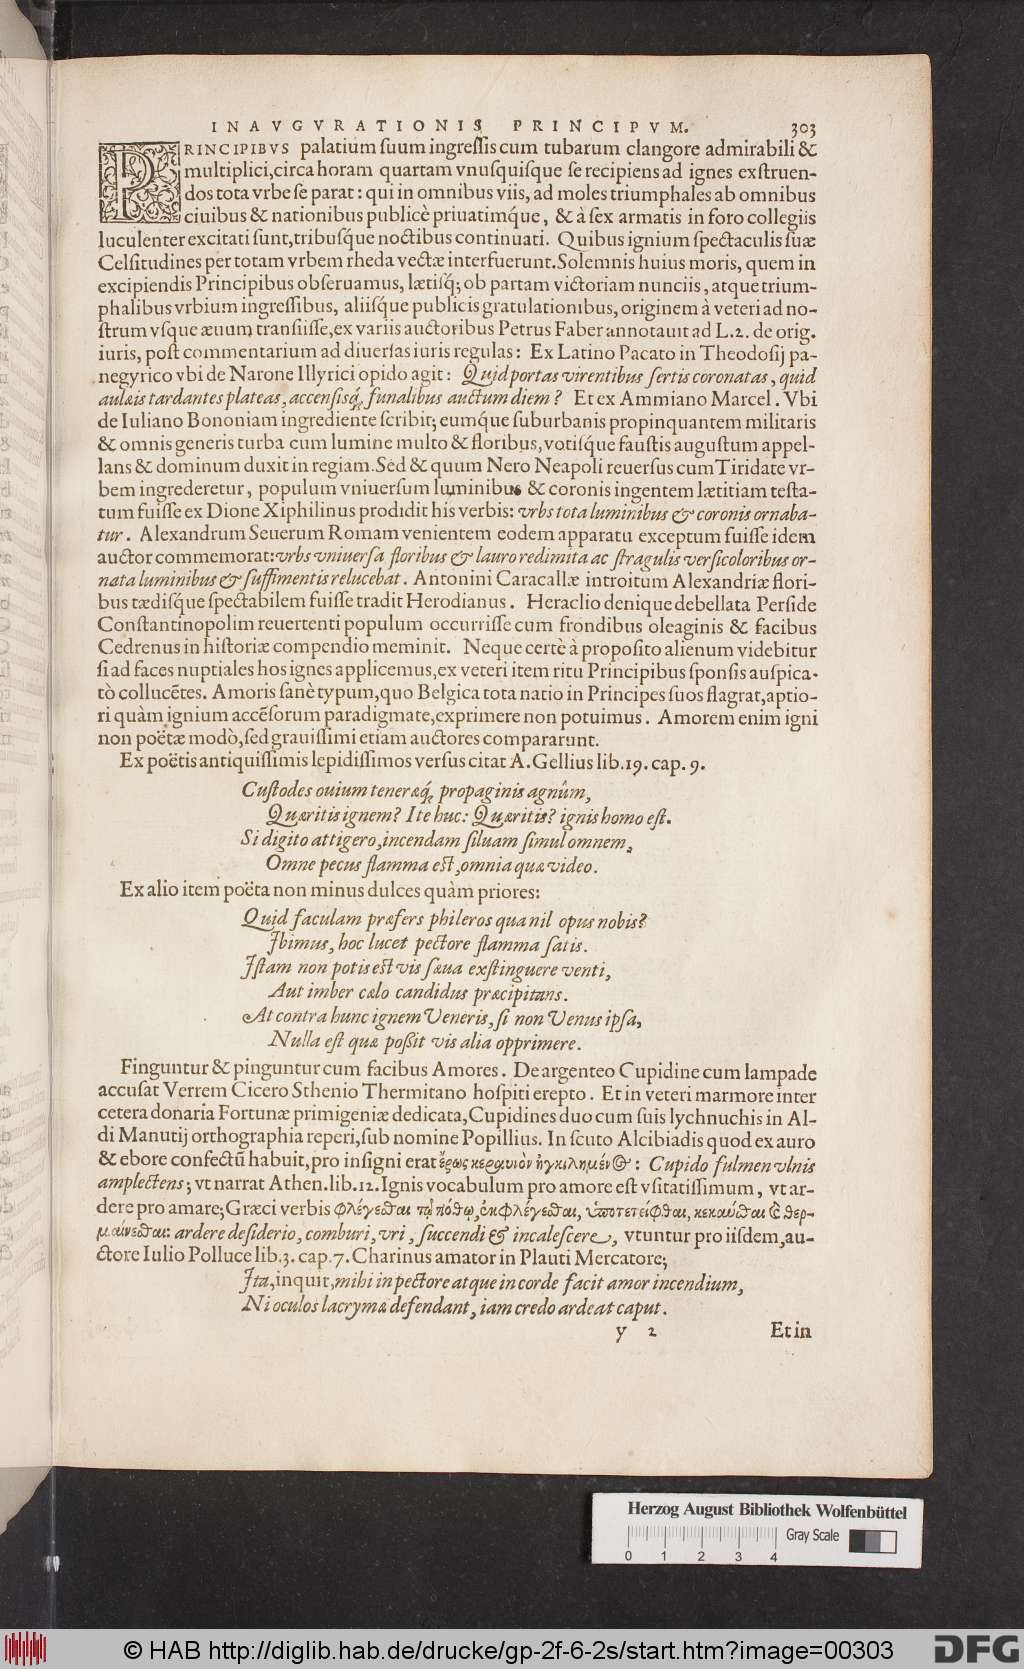 INAVGVRATIONIS PRINCIPVM. 303
PRINCIPIBVS palatium ſuum ingreſſis cum tubarum clangore admirabili &
multiplici, circa horam quartam vnuſquiſque ſe recipiens ad ignes exſtruen-
dos tota vrbe ſe parat: qui in omnibus viis, ad moles triumphales ab omnibus
ciuibus & nationibus publicè priuatimq́ue, & à ſex armatis in foro collegiis
luculenter excitati ſunt, tribuſq́ue noctibus continuati. Quibus ignium ſpectaculis ſuæ
Celſitudines per totam vrbem rheda vectæ interfuerunt. Solemnis huius moris, quem in
excipiendis Principibus obſeruamus, lætiſq́; ob partam victoriam nunciis, atque trium-
phalibus vrbium ingreſſibus, aliiſque publicis gratulationibus, originem à veteri ad no-
ſtrum vſque æuum tranſiiſſe, ex variis auctoribus Petrus Faber annotauit ad L.2. de orig.
iuris, poſt commentarium ad diuerſas iuris regulas: Ex Latino Pacato in Theodoſij pa-
negyrico vbi de Narone Illyrici opido agit: Quid portas virentibus ſertis coronatas, quid
aulæis tardantes plateas, accenſisq́ funalibus auctum diem? Et ex Ammiano Marcel. Vbi
de Iuliano Bononiam ingrediente ſcribit; eumq́ue ſuburbanis propinquantem militaris
& omnis generis turba cum lumine multo & floribus, votiſq́ue fauſtis auguſtum appel-
lans & dominum duxit in regiam. Sed & quum Nero Neapoli reuerſus cum Tiridate vr-
bem ingrederetur, populum vniuerſum luminibus & coronis ingentem lætitiam teſta-
tum fuiſſe ex Dione Xiphilinus prodidit his verbis: vrbs tota luminibus & coronis ornaba-
tur. Alexandrum Seuerum Romam venientem eodem apparatu exceptum fuiſſe idem
auctor commemorat: vrbs vniuerſa floribus & lauro redimita ac ſtragulis verſicoloribus or-
nata luminibus & ſuffimentis relucebat. Antonini Caracallæ introitum Alexandriæ flori-
bus tædiſq́ue ſpectabilem fuiſſe tradit Herodianus. Heraclio denique debellata Perſide
Conſtantinopolim reuertenti populum occurriſſe cum frondibus oleaginis & facibus
Cedrenus in hiſtoriæ compendio meminit. Neque certè à propoſito alienum videbitur
ſi ad faces nuptiales hos ignes applicemus, ex veteri item ritu Principibus ſponſis auſpica-
tò collucẽtes. Amoris ſanè typum, quo Belgica tota natio in Principes ſuos flagrat, aptio-
ri quàm ignium accẽſorum paradigmate, exprimere non potuimus. Amorem enim igni
non poëtæ modò, ſed grauiſſimi etiam auctores compararunt.
Ex poëtis antiquiſſimis lepidiſſimos verſus citat A. Gellius lib. 19. cap. 9.
Cuſtodes ouium teneræq́ propaginis agnûm,
Quæritis ignem? Ite huc: Quæritis? ignis homo eſt.
Si digito attigero, incendam ſiluam ſimul omnem,
Omne pecus flamma eſt, omnia quæ video.
Ex alio item poëta non minus dulces quàm priores:
Quid faculam præfers phileros qua nil opus nobis?
Ibimus, hoc lucet pectore flamma ſatis.
Iſtam non potis eſt vis ſæua exſtinguere venti,
Aut imber cælo candidus præcipitans.
At contra hunc ignem Veneris, ſi non Venus ipſa,
Nulla eſt quæ poßit vis alia opprimere.
Finguntur & pinguntur cum facibus Amores. De argenteo Cupidine cum lampade
accuſat Verrem Cicero Sthenio Thermitano hoſpiti erepto. Et in veteri marmore inter
cetera donaria Fortunæ primigeniæ dedicata, Cupidines duo cum ſuis lychnuchis in Al-
di Manutij orthographia reperi, ſub nomine Popillius. In ſcuto Alcibiadis quod ex auro
& ebore confectũ habuit, pro inſigni erat ἔρως κεραυιὸν ἠγκιλημέν⊙: Cupido fulmen vlnis
amplectens; vt narrat Athen. lib. 12. Ignis vocabulum pro amore eſt vſitatiſſimum, vt ar-
dere pro amare; Græci verbis φλέγεσθαι τῷ πόθῳ, ἐκφλέγεσθαι, ὑποτετείφθαι, κεκαῦσθαι & θερ-
μαίνεσθαι: ardere deſiderio, comburi, vri, ſuccendi & incaleſcere, vtuntur pro iiſdem, au-
ctore Iulio Polluce lib. 3. cap. 7. Charinus amator in Plauti Mercatore;
Ita, inquit, mihi in pectore atque in corde facit amor incendium,
Ni oculos lacrymæ defendant, iam credo ardeat caput.
y 2 Et in
Herzog August Bibliothek Wolfenbüttel
Gray Scale
0 1 2 3 4
© HAB http://diglib.hab.de/drucke/gp-2f-6-2s/start.htm?image=00303 DFG